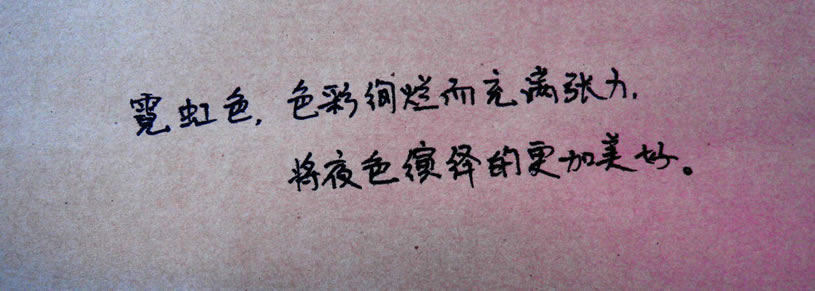 霓虹色,色彩绚烂而充满张力,
将夜色演绎的更加美好。